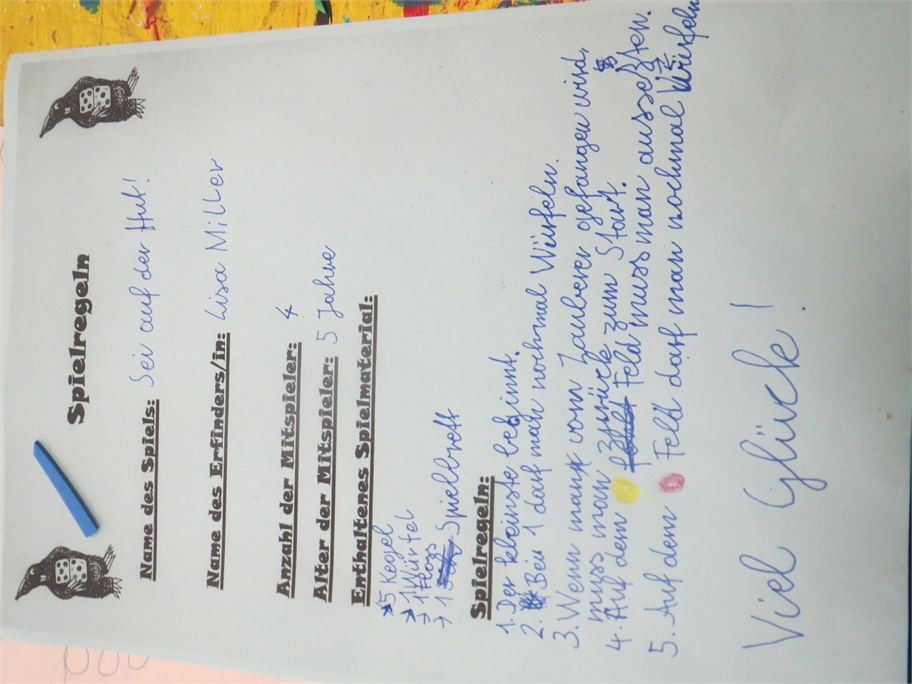 Spielregeln
Name des Spiels: Sei auf der Hut!
Name des Erfinders/in: Lisa Miller
Anzahl der Mitspieler: 4
Alter der Mitspieler: 5 Jahre
Enthaltenes Spielmaterial:
→ 5 Kegel
→ 1 Würfel
→ 1
→ 1 Spielbrett
Spielregeln:
1. Der kleinste beginnt.
2. Bei 1 darf man nochmal Würfeln.
3. Wenn man vom Zauberer gefangen wird,
muss man zurück zum Start.
4. Auf dem Feld muss man aussetzten.
5. Auf dem Feld darf man nochmal Würfeln
Viel Glück!